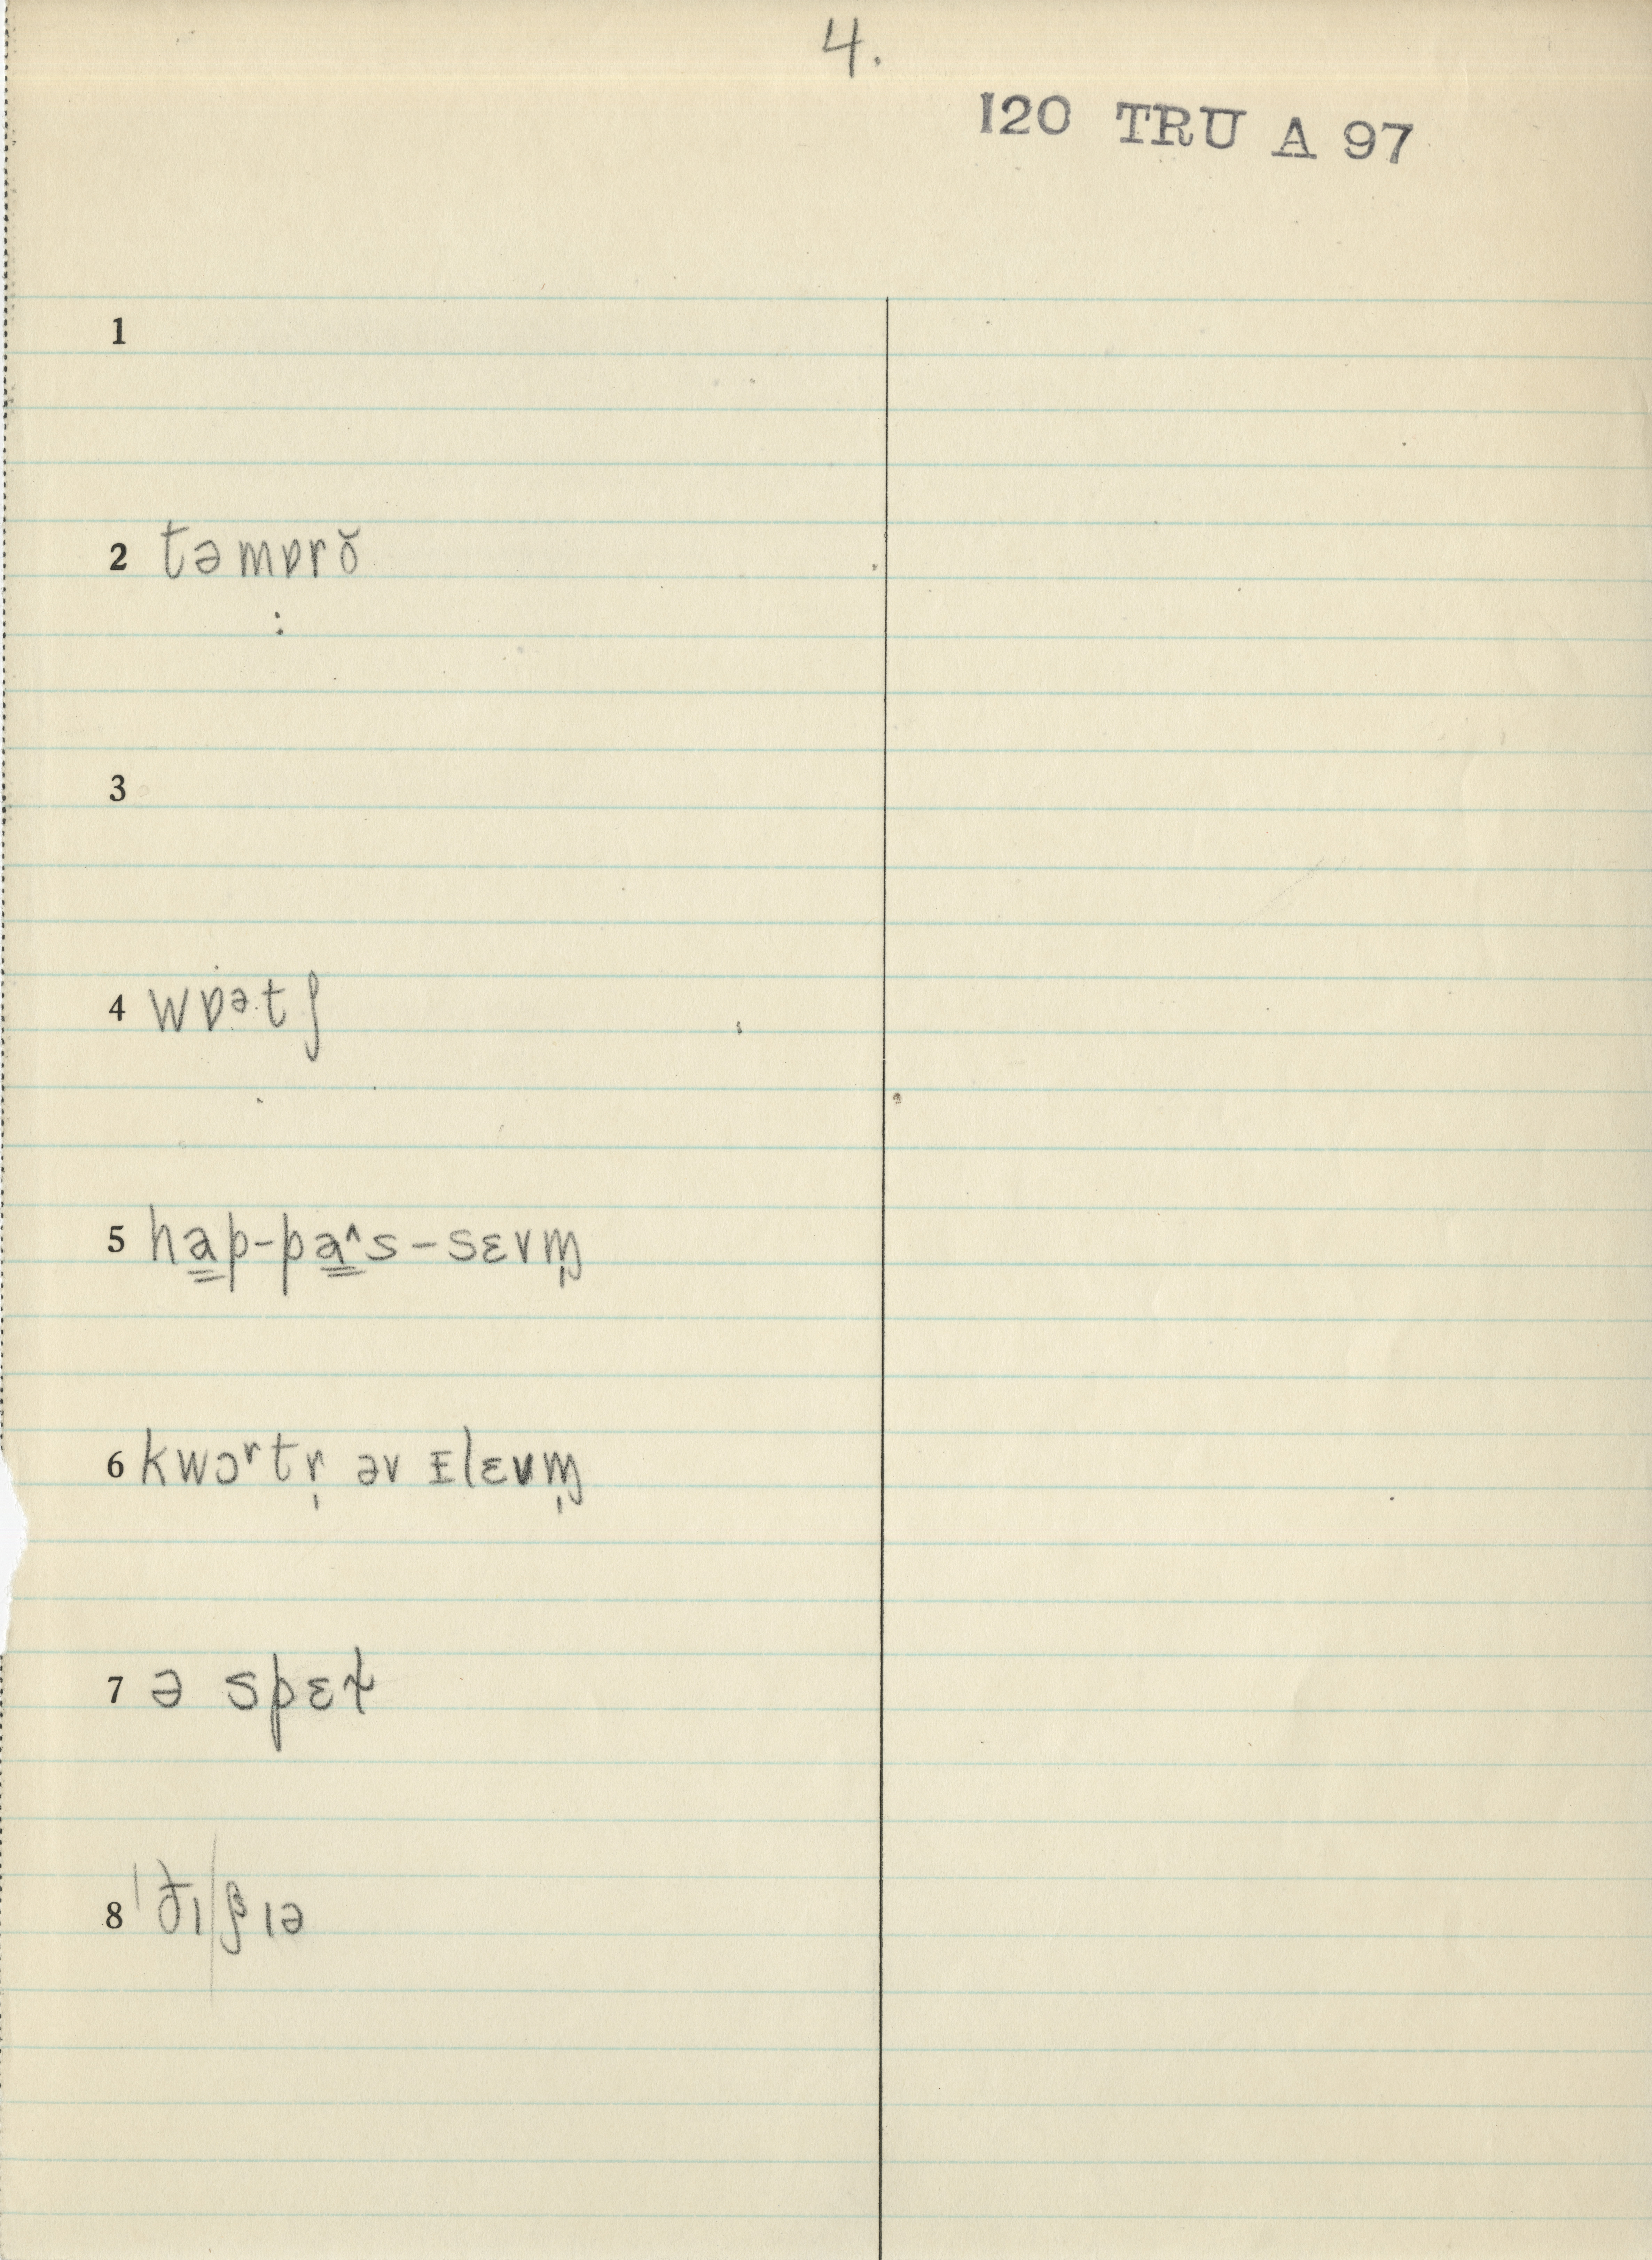 4.
120 TRU A 97
1
2 təmɒrŏ
3
4 wɒᵊtʃ
5 ha̳p-pa̳^s-sɛvm̩
6 kwɔʳtr̩ əv ɪlɛvm̩
7 ə spɛɫ
8 ˈðɪ|ʃɪə